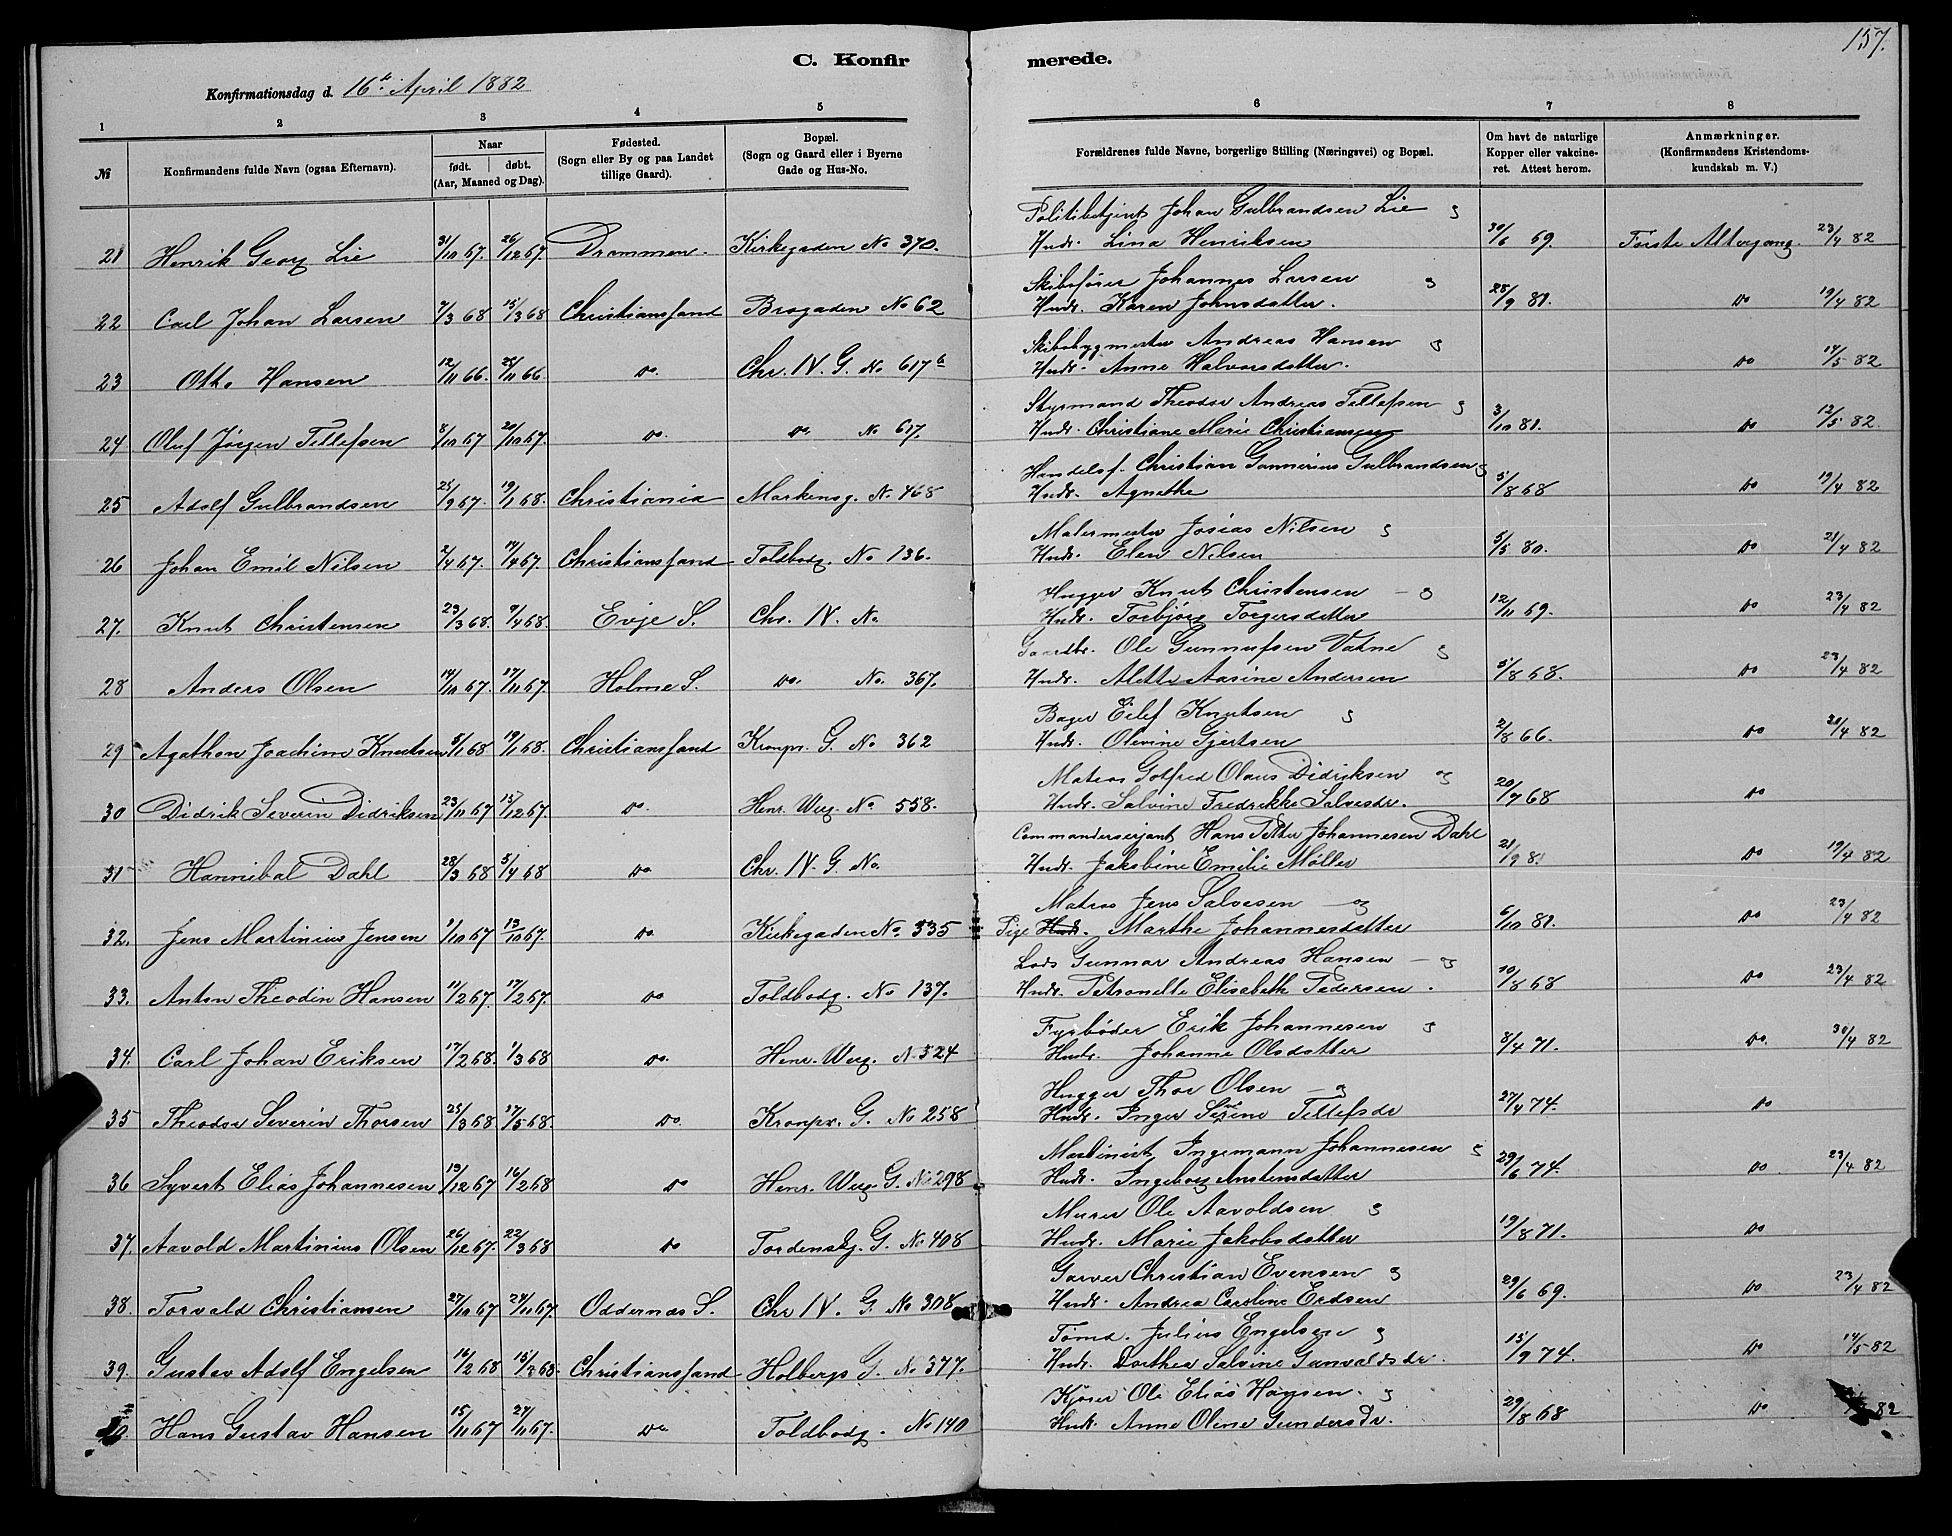 157.
C. Konfirmerede.
Konfirmationsdag d. 16de April 1882
1 2 3 4 5 6 7 8
№ Konfirmandens fulde Navn (ogsaa Efternavn). Naar født. døbt. (Aar, Maaned og Dag). Fødested. (Sogn eller By og paa Landet tillige Gaard). Bopæl. (Sogn og Gaard eller i Byerne Gade og Hus-No. Forældrenes fulde Navne, borgerlige Stilling (Næringsvei) og Bopæl. Om havt de naturlige Kopper eller vakcineret. Attest herom. Anmærkninger. (Konfirmandens Kristendomskundskab m. V.)
Politibetjent Johan Gulbrandsen Lie og
21 Henrik Georg Lie 31/10 67. 26/12 67 Drammen. Kirkegaden No 370. Hustr. Lina Henriksen 30/6 69 Første Altergang. 23/4 82
Skibsfører Johannes Larsen og
22 Carl Johan Larsen 7/3 68 15/3 68 Christianssand Brogaden No 62 Hustr. Karen Johnsdatter. 28/9 81. Do 19/4 82
Skibsbygmester Andreas Hansen og
23 Otto Hansen 12/11 66. 25/11 66. Do. Chr. IV. G. No 617b Hustr. Anne Halvorsdatter. Do 14/5 82
Styrmand Theodor Andreas Tellefsen og
24 Oluf Jørgen Tellefsen 8/10 67 20/10 67. Do. Do. No 617. Hustr. Christiane Marie Christiansen 3/10 81. Do 12/5 82.
Handelsf. Christian Gunnerius Gulbrandsen og
25 Adolf Gulbrandsen 25/9 67. 19/1 68. Christiania Markensg. No. 468 Hustr. Agnethe 5/8 68 Do 19/4 82
Malermester Josias Nilsen og
26 Johan Emil Nilsen 2/4 67. 14/4 67. Christianssand Toldbodg. No 136. Hustr. Elen Nilsen 5/5 80. Do 21/4 82
Hugger Knut Christensen — og
27. Knut Christensen 23/3 68. 9/4 68. Evje S. Chr. IV. No. Hustr. Torbjørg Torgersdatter 12/11 69. Do 23/4 82
Gaardbr. Ole Gunnufsen Vatne og
28 Anders Olsen 14/10 67. 17/11 67. Holme S. Do. No. 367. Hustr. Alette Aasine Andersen 5/8 68. Do 23/4 82
Bager Eilef Knutsen og
29 Agathon Joachim Knutsen 5/1 68 19/1 68. Christianssand Kronpr. G. No 362 Hustr. Olevine Gjertsen 2/8 66. Do 30/4 82
Matros Gotfred Olaus Didriksen og
30 Didrik Severin Didriksen 23/11 67 15/12 67. Do. Henr. Werg. No 558. Hustr. Salvine Fredrikke Salvesdr. 20/7 68 Do
Commandersergjant Hans Petter Johannesen Dahl
31 Hannibal Dahl 28/3 68 5/4 68 Do. Chr. IV. G. No. Hustr. Jakobine Emilie Møller 21/9 8 Do 19/4 82
Matros Jens Salvesen — og
32. Jens Martinius Jensen 1/10 67 13/10 67. Do. Kirkegaden No. 335 Pige Hustr. Marthe Johannesdatter 6/10 81. Do 23/4 82
Lods Gunnar Andreas Hansen — og
33. Anton Theodin Hansen 11/2 67. 17/2 67. Do Toldbodg. No 137. Hustr. Petronelle Elisabeth Pedersen. 10/8 68 Do 23/4 82
Fyrbøder Erik Johannesen og
34. Carl Johan Eriksen 17/2 68. 1/3 68 Do. Henr. Werg. N. 324 Hustr. Johanne Olsdatter 8/4 71. Do. 30/4 82
Hugger Thor Olsen — og
35 Theodor Severin Thorsen 25/3 68 17/5 68. Do. Kronpr. G. No 258 Hustr. Inger Serine Tellefsdr 27/4 74. Do
Maskinist Ingemann Johannesen og
36 Syvert Elias Johannesen 19/12 67 16/2 68 Do Henr. Werg. G. No 298 Hustr. Ingeborg Anstensdatter 29/6 74. Do 23/4 82
Murer Ole Aavoldsen og
37. Aavold Martinius Olsen 26/12 67. 22/3 68 Do Tordenskj. G. No 408 Hustr. Marie Jakobsdatter 19/8 71. Do
Garver Christian Evensen og
38. Torvald Christiansen 27/10 67 24/11 67. Oddernæs S. Chr IV. G. No 308 Hustr. Andrea Caroline Erdsen 29/6 69. Do 23/4 82
Tømd. Julius Engelsen og
39. Gustav Adolf Engelsen 14/2 68 15/3 68. Christianssand Holbergs G. No 377. Hustr. Dorthea Salvine Gunvaldsdr. 15/9 74. Do 14/5 82
Kjører Ole Elias Hansen. og
Hans Gustav Hansen 15/11 67 24/11 67. Do Toldbodg. No 140 Hustr. Anne Oline Gundersdr. 29/8 68 Do 82